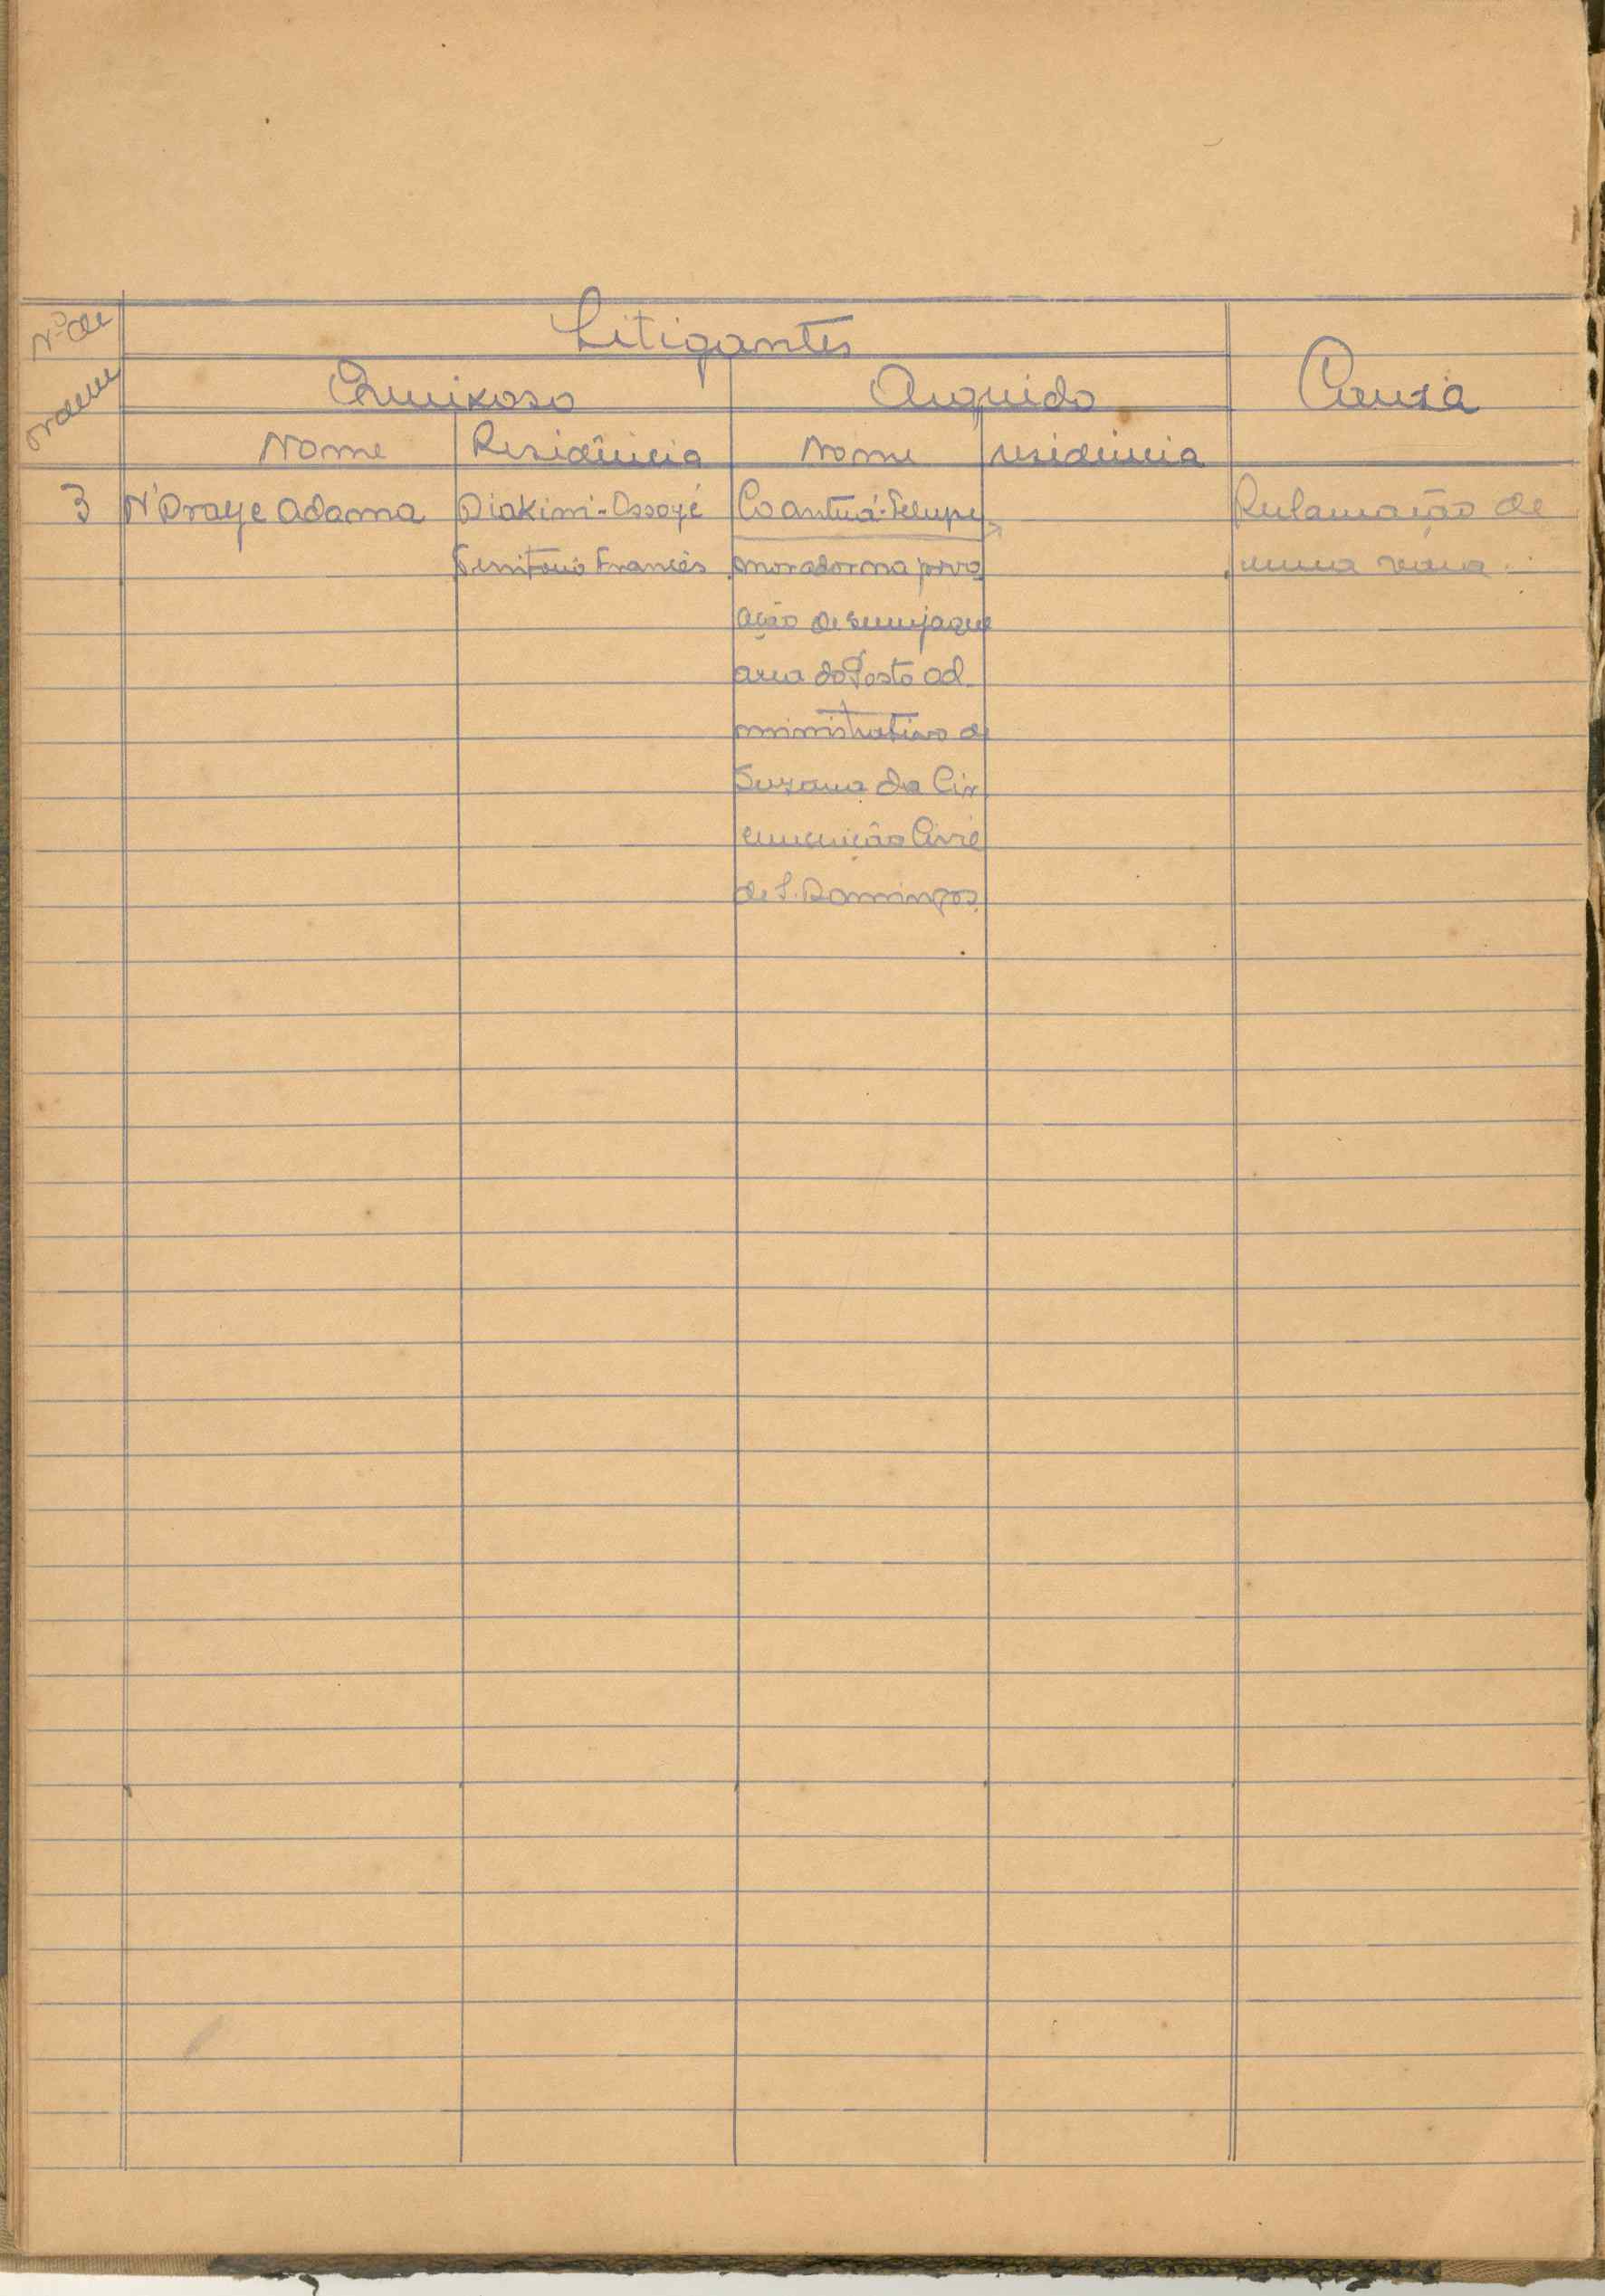 Nº de ordem
Litigantes
Queixoso
Arguido
Causa
Nome
Residência
Nome
residência
3 N'Draye Adama
Diakini-Ossoyé
Território Francês
Co antuá-Felupe
morador na povo
ação de
área do Posto ad
ministrativo de
Suzana da Cir
cunscrição Civil
de S. Domingos
Reclamação de
uma vaca.